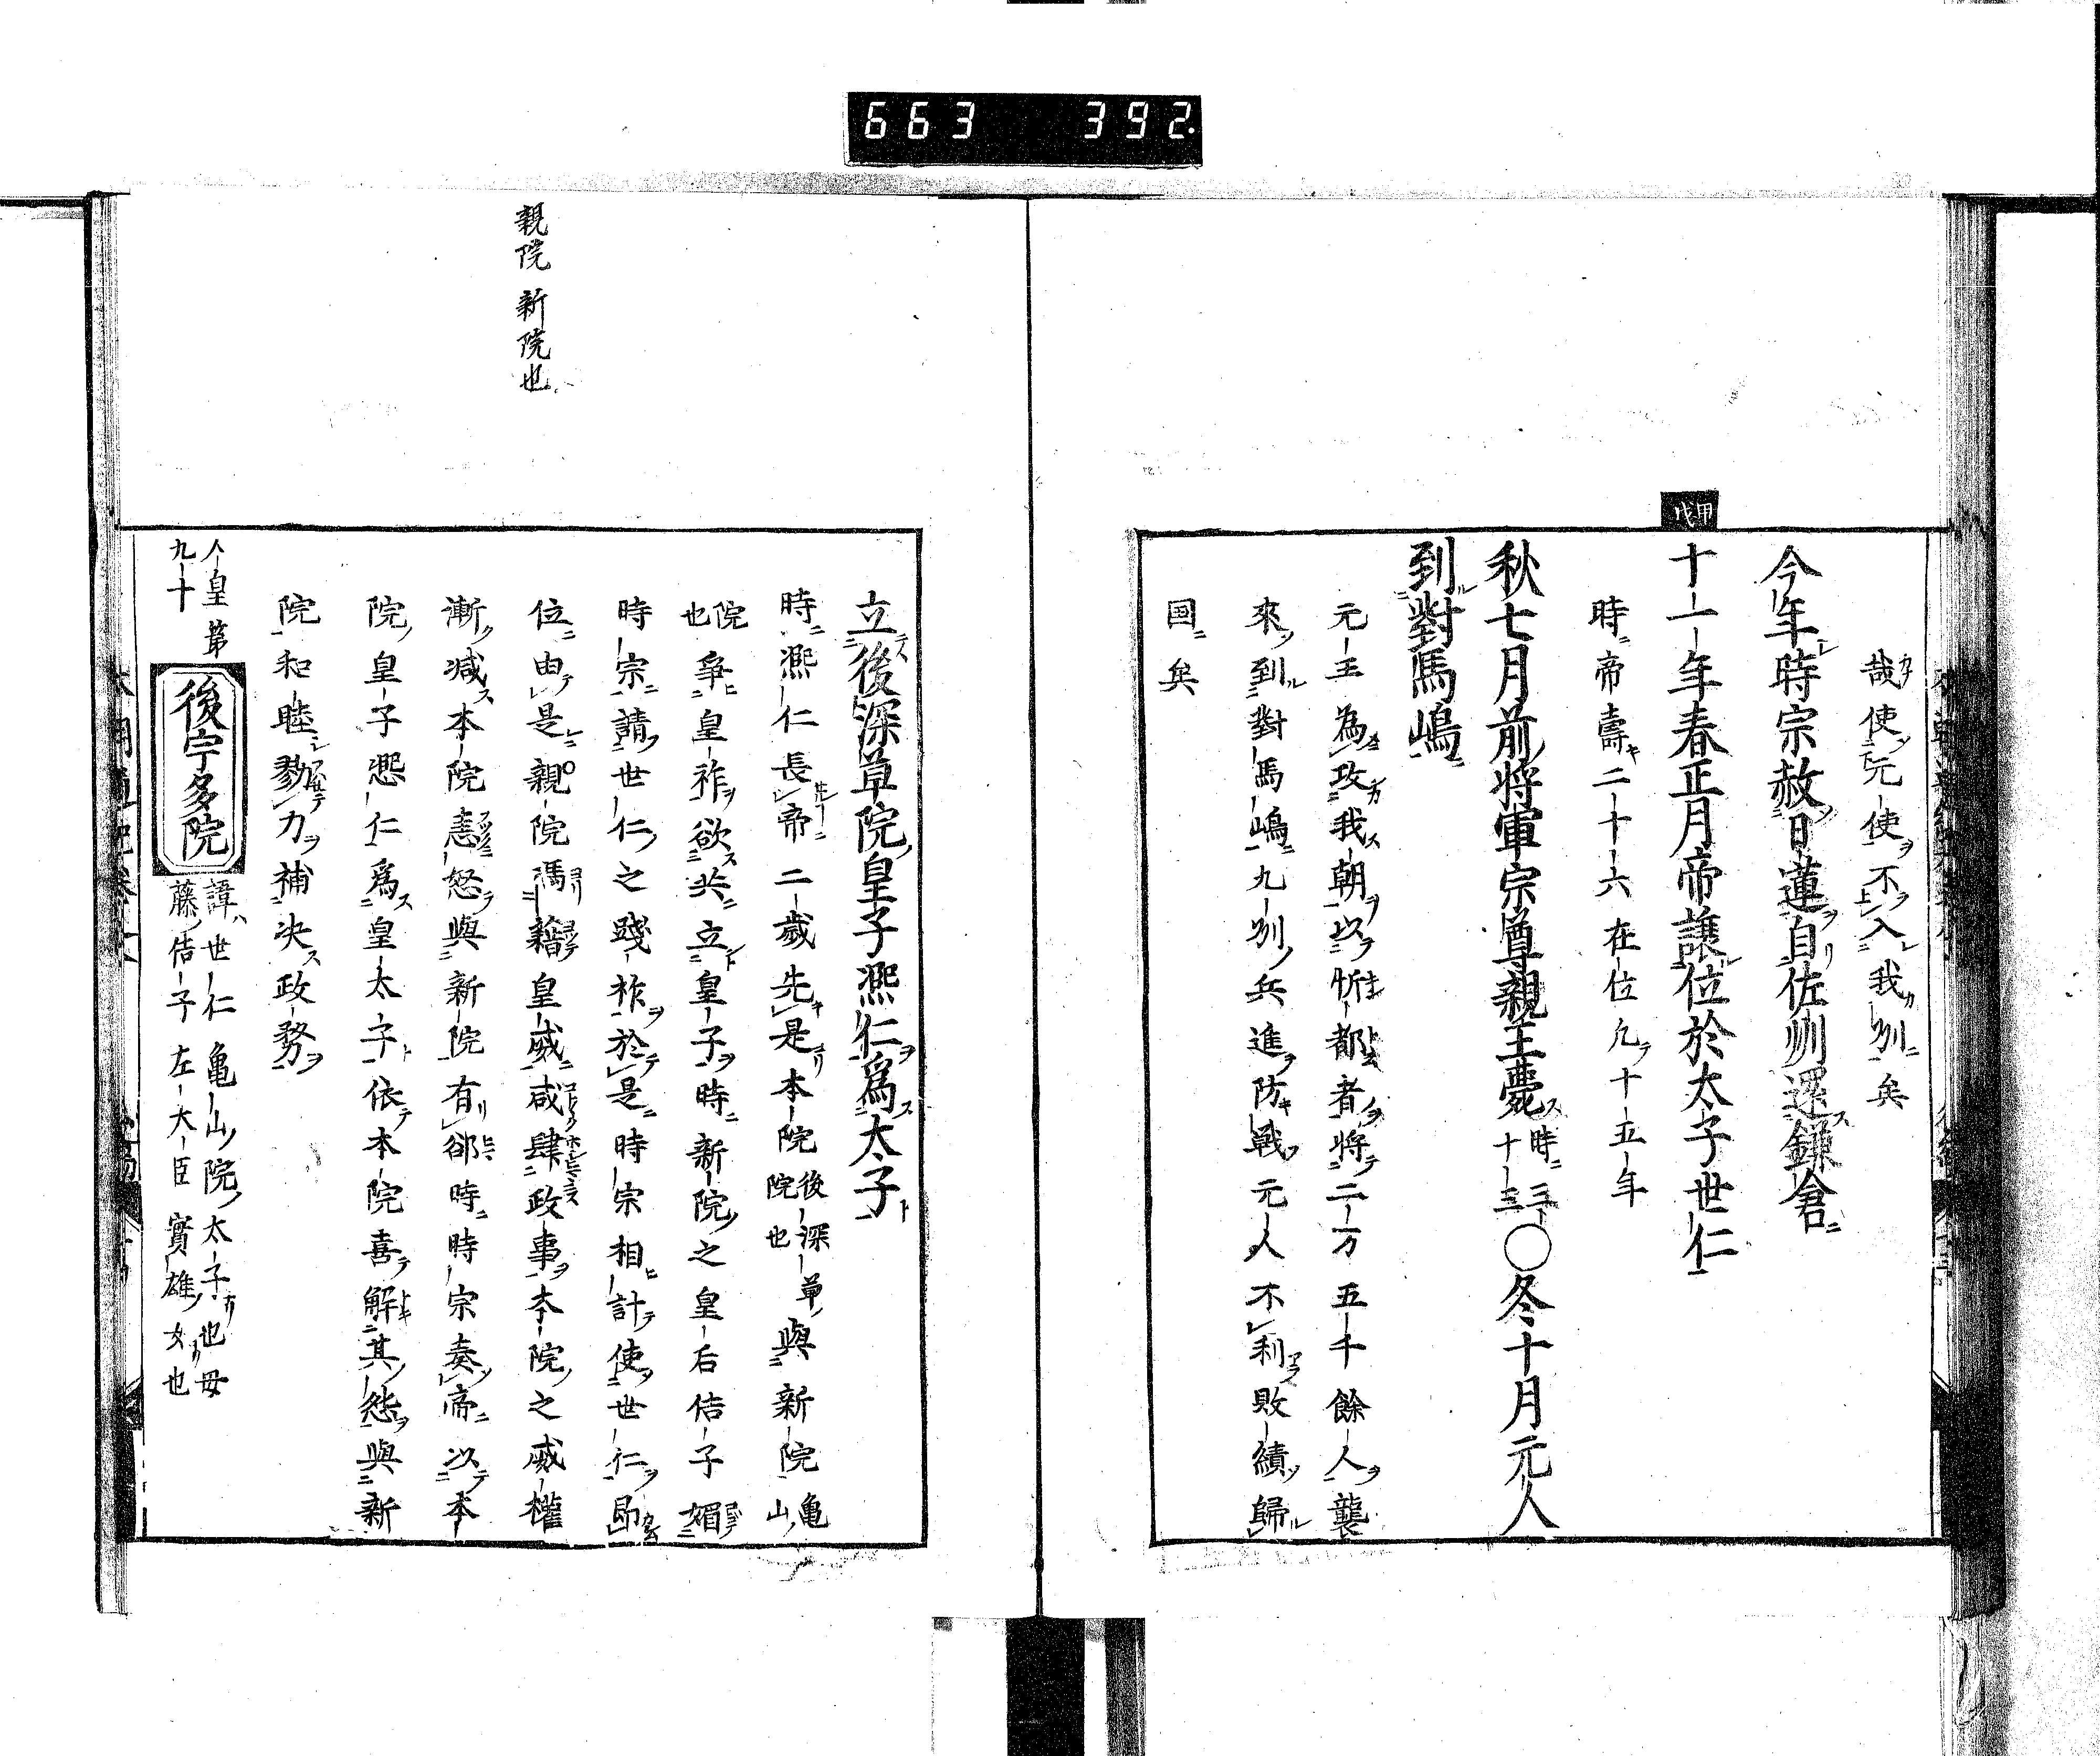 663 392.
哉使元使不入我州矣
今年時宗赦日蓮自佐州還鎌倉
甲戌
十一年春正月帝讓位於太子世仁
時帝壽二十六在位凡十五年
秋七月前將軍宗尊親王薨時三十三〇冬十月元人
到對馬嶋
元王為攻我朝以忻都者將二万五千餘人襲
來到對馬嶋九州兵進防戰元人不利敗績歸
国矣
親院新院也
立後深草院皇子凞仁爲太子
時凞仁長帝二歲先是本院後深草院也與新院亀山
院也爭皇祚欲共立皇子時新院之皇后佶子媚
時宗請世仁之踐祚於是時宗相計使世仁即
位由是親院馮藉皇威咸肆政事本院之威權
漸减本院恚怒與新院有郤時時宗奏帝以本
院皇子凞仁爲皇太子依本院喜解其怨與新
院和睦勠力補决政務
人皇第九十
後宇多院
諱世仁亀山院太子也母
藤佶子左大臣實雄女也